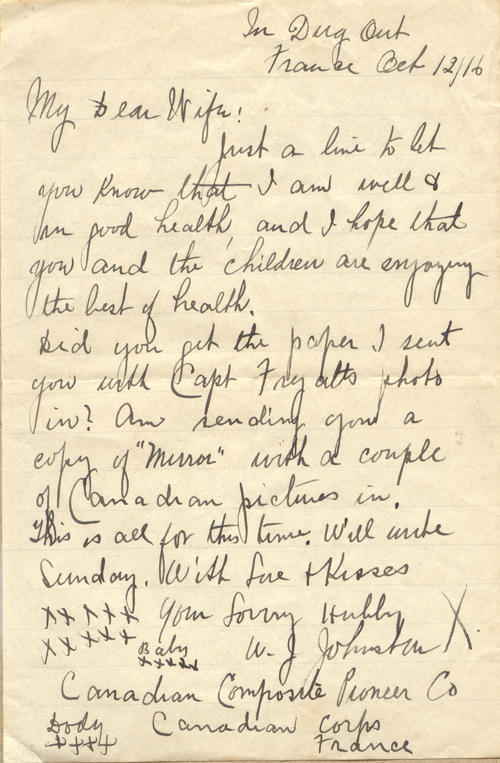 In Dug Out
France Oct 12/16
My Dear Wife:
Just a line to let
you know that I am well &
in good health and I hope that
you and the children are enjoying
the best of health.
Did you get the paper I sent
you with Capt Fryatts photo
in? Am sending you a
copy of "Mirror" with a couple
of Canadian pictures in.
This is all for this time. Will write
Sunday. With Love & Kisses
xx xxx Your Loving Hubby
xx xxx W. J Johnston X.
Baby
xxxxx
Canadian Composite Pioneer Co
Dody Canadian Corps
xxxx France